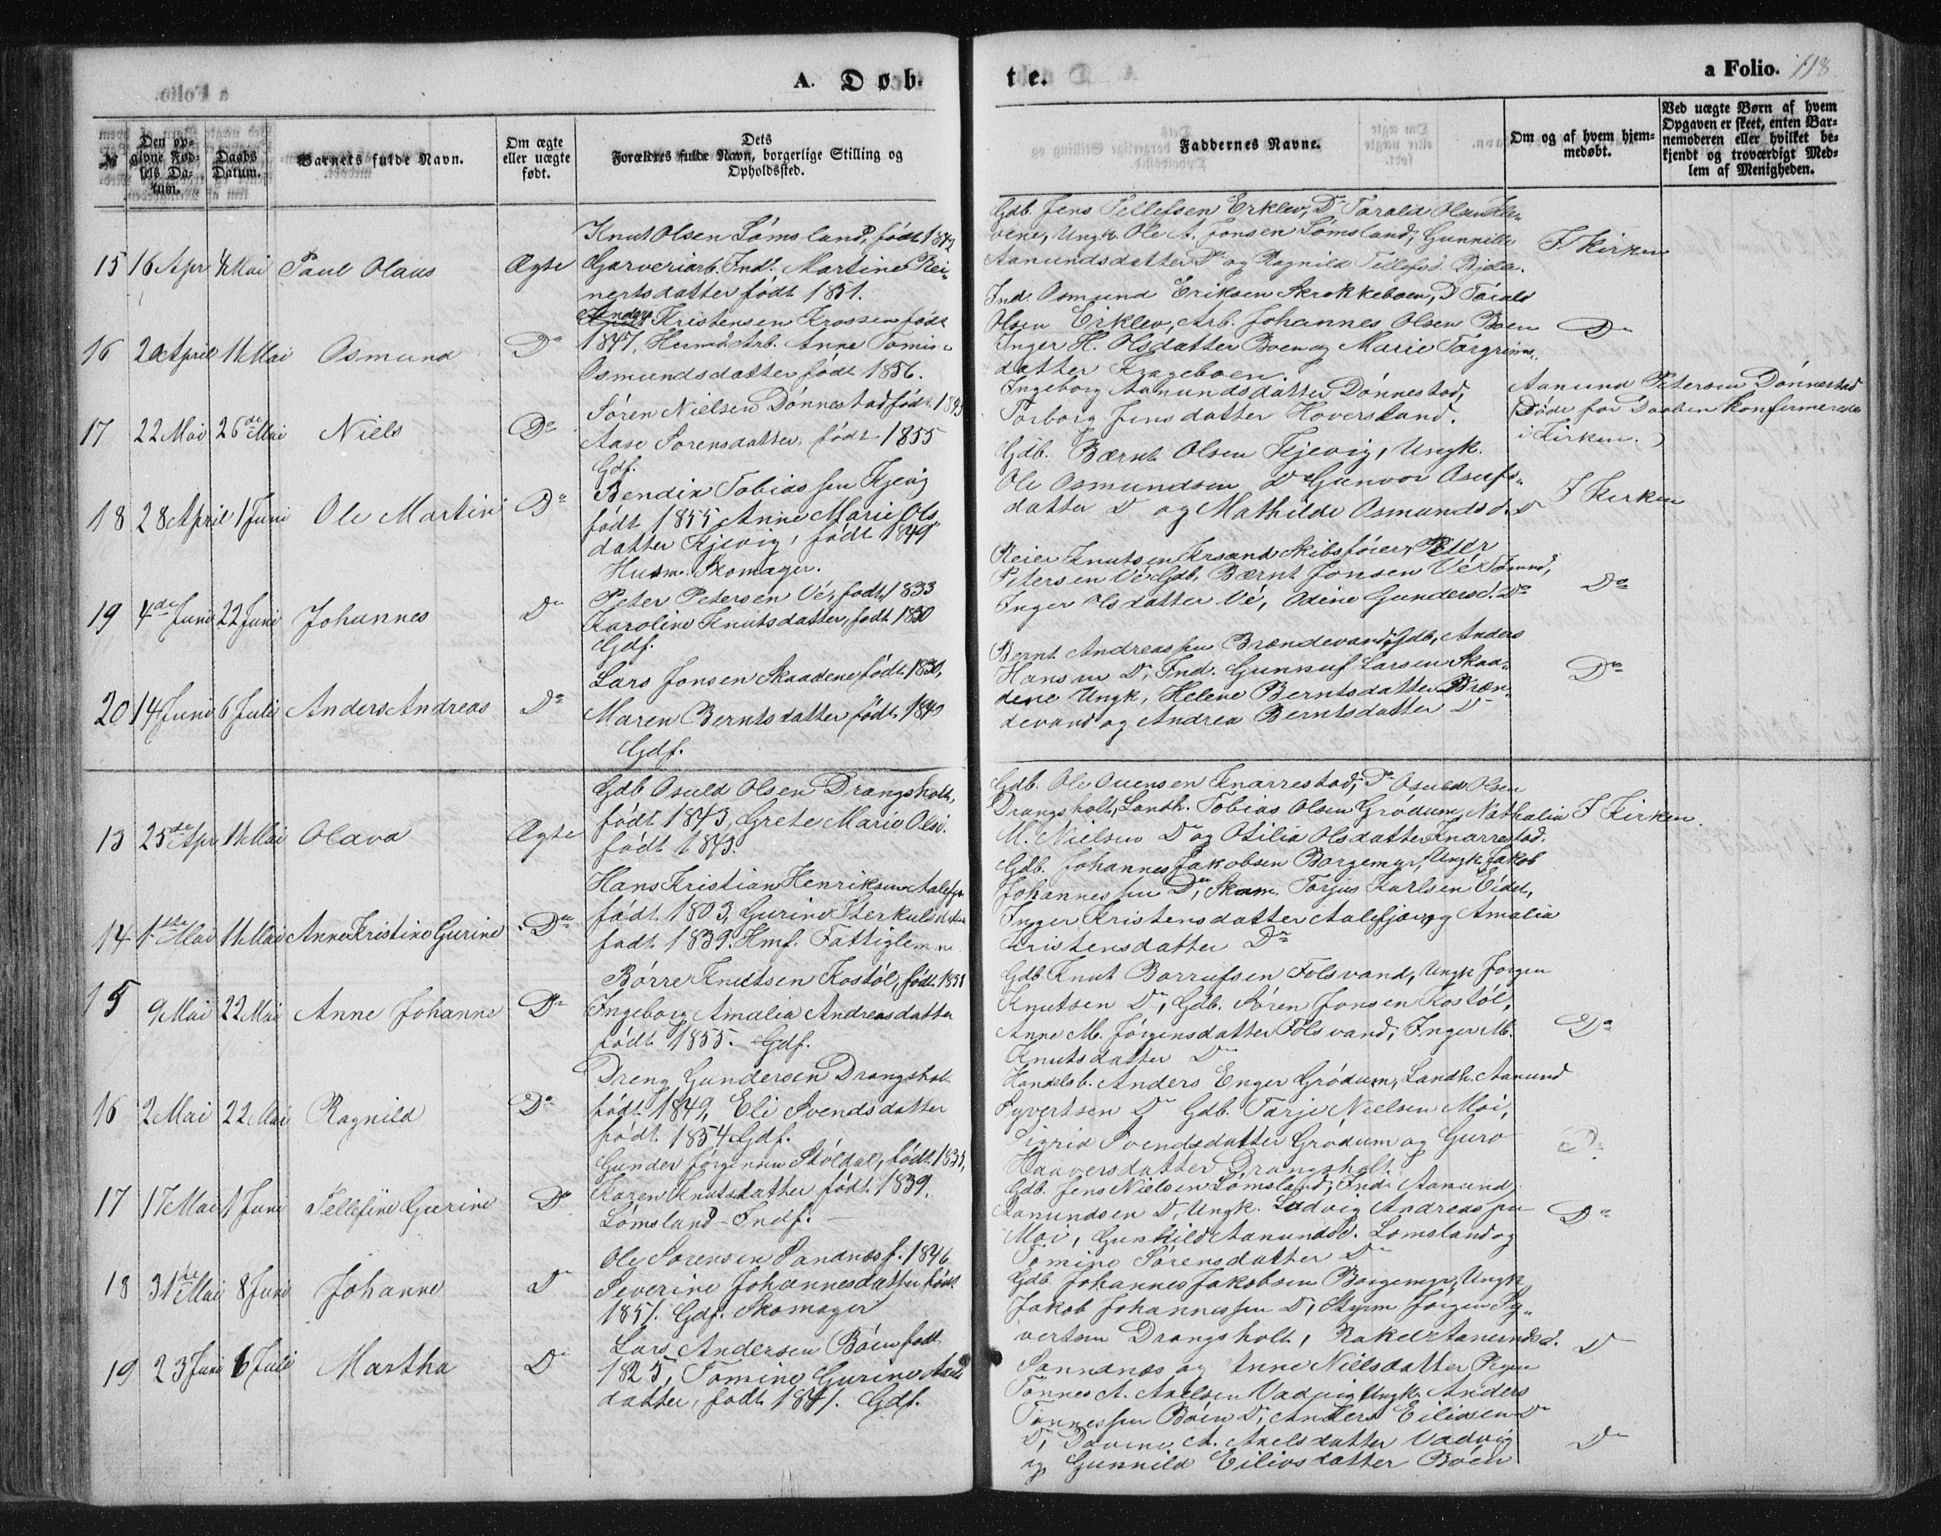 A. Døb-
te.
a Folio. 118.
№
Den op-
givne Fød-
sels Da-
tum.
Daabs
Datum.
Barnets fulde Navn.
Om ægte
eller uægte
født.
Dets
Forældres fulde Navn, borgerlige Stilling og
Opholdssted.
Faddernes Navne.
Om og af hvem hjem-
medøbt.
Ved uægte Børn af hvem
Opgaven er skeet, enten Bar-
nemoderen eller hvilket be-
kjendt og troværdigt Med-
lem af Menigheden.
15 16 Apr Mai Paul Olaus Ægte
Knut Olsen Lømsland, født
Garveriarb. Ind. Martine Rei-
nertsdatter født 1851.
Gdb. Jens Tellefsen Erklev, Do Tarald Olsen
Ungk. Ole A. Jonsen Lømsland, Gunnild
Aanundsdatter Do og Ragnild Tellefsd.
I Kirken
16 20 April 11 Mai Osmund Do
Anders Kristensen Krossen født
1847, Husmd. Arb. Anne Tomine
Osmundsdatter født 1856.
Ind. Osmund Eriksen Skrokkeboen, D Tarald
Olsen Erklev, Arb. Johannes Olsen Boen
Inger H. Olsdatter Boen og Marie Torgrims-
datter Krageboen
Do
17 22 Mai 26de Mai Niels Do
Søren Nielsen Dønnestad født
Aase Sørensdatter, født 1855
Gdf.
Ingeborg Aanundsdatter Dønnestad,
Torborg Jensdatter Hoversland.
Gdb. Bærnt Olsen Kjevig, Ungk.
Aanund Petersen Dønnestad
(Døde før Daaben konfirmeredes
i Kirken.)
18 28 April 1 Juni Ole Martin Do
Bendix Tobiassen Kjevig
født 1855 Anne Marie Ols
datter Kjevig, født 1849
Husm. Skomager.
Ole Osmundsen Do Gunvor Osufs-
datter Do og Mathilde Osmundsd. D
I Kirken
19 4de Juni 22 Juni Johannes Do
Peter Petersen Vé, født 1833
Karoline Knutsdatter, født 1830
Gdf.
Reier Knutsen Krsand Skibsfører, Peter
Petersen Vé Gdb, Bærnt Jonsen Vé
Inger Olsdatter Vé, Odine Gundersd. Do
Do
20 14 Juni 6 Juli Anders Andreas Do
Lars Jonsen Skaadene født 1830,
Maren Berntsdatter født 1840
Gdf.
Bernt Andreassen Brændevand, Gdb, Anders
Hansen D, Ind. Gunnuf Larsen Skaa-
dene Ungk, Helene Berntsdatter Bræn-
devand og Andrea Berntsdatter Do
Do
13 25de Apr 11 Mai Olava Ægte
Gdb Osuld Olsen Drangsholt,
født 1843, Grete Marie Olsd.
født 1843.
Gdb. Ole Ouensen Knarrestad, Do Osuld Olsen
Drangsholt, Landh. Tobias Olsen Grødum, Nathalia
M. Nielsen Do og Otilia Olsdatter Knarrestad.
I Kirken.
14 1ste Mai 11 Mai Anne Kristine Gurine Do
Hans Kristian Henriksen Aalefjær
født 1803, Gurine Terkulsdatter
født 1839. Hmf. Fattiglemme
Gdb. Johannes Jakobsen Borgemyr, Ungk Jakob
Johannessen Do, Skom. Torjus Karlsen Eidet,
Inger Kristensdatter Aalefjær og Amalia
Kristensdatter Do
15 9 Mai 22 Mai Anne Johanne Do
Børre Knutsen Kostøl, født 1851
Ingeborg Amalia Andreasdatter
født 1855. Gdf.
Gdb Knut Børrufsen Tolsvand, Ungk Jørgen
Knutsen Do, Gdb. Søren Jonsen Kostøl,
Anne M. Jørgensdatter Tolsvand, Inger M.
Knutsdatter Do
Do
16 2 Mai 22 Mai Ragnild Do
Dreng Gundersen Drangsholt
født 1849, Eli Svendsdatter
født 1854 Gdf.
Handelsb. Anders Enger Grødum, Landh. Aanund
Syvertsen Do Gdb. Tarje Nielsen Moi,
Sigrid Svendsdatter Grødum og Guro
Haaversdatter Drangsholt.
Do
17 17 Mai 1 Juni Tellefine Gurine Do
Gunder Jørgensen Støldal, født 1834,
Karen Knutsdatter født 1839.
Lømsland – Indf.
Gdb. Jens Nielsen Lømsland, Ind. Aanund
Aanundsen D, Ungk. Ludvig Andreassen
Moi, Gunhild Aanundsd. Lømsland og
Tomine Sørensdatter Do
Do
18 31te Mai 8 Juni Johanne Do
Ole Sørensen Sandnæs f. 1846
Severine Johannesdatter født
1851. Gdf. Skomager
Gdb. Johannes Jakobsen Borgemyr, Ungk
Jakob Johannessen D, Styrm Jørgen Sy-
vertsen Drangsholt, Rakel Aanundsd.
Sandnæs og Anne Nielsdatter
Do
19 23 Juni 6 Juli Martha Do
Lars Andersen Bøen født
1825, Tomine Gurine Axels
datter, født 1841. Gdf.
Tønnes A. Axelsen Vadvig Ungk. Anders
Tønnessen Bøen D, Anders Eilivsen Do
D, A. Axelsdatter Vadvig
og Gunnild Eilivsdatter Bøen
Do